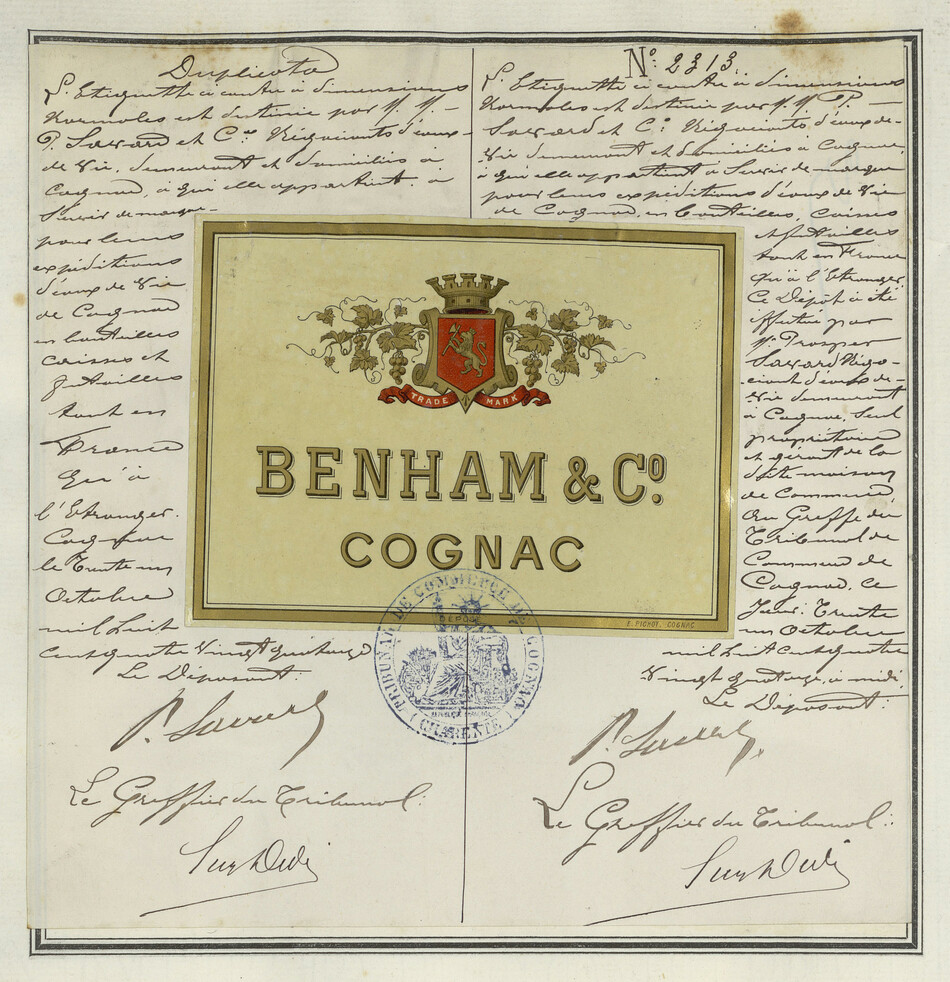 Duplicata
L'Etiquette ci contre à dimensions
Normales est destinée par M. M.
P. Savard et Cie Négociants d'eaux-
de Vie, demeurant et domiciliés à
Cognac, à qui elle appartient à
Servir de marque
pour leurs
expéditions
d'eaux de Vie
de Cognac
en bouteilles
caisses et
futailles
tant en
France
qu'à
l'Etranger.
Cognac
le Trente un
Octobre
mil huit
cent quatre Vingt quatorze
Le Déposant:
P. Savard
Le Greffier du Tribunal:
No. 2313
L'Etiquette ci contre à dimensions
Normales est destinée par M. M. P.
Savard et Cie Négociants d'eaux-de-
Vie demeurant et domiciliés à Cognac,
à qui elle appartient à Servir de marque
pour leurs expéditions d'eaux de Vie
de Cognac, en bouteilles, caisses
et futailles
tant en France
qu'à l'Etranger
Ce Dépôt a été
effectué par
M. Prosper
Savard Négo-
ciant d'eaux-de-
Vie demeurant
à Cognac, Seul
propriétaire
et gérant de la
dite maison
de Commerce
Au Greffe du
Tribunal de
Commerce de
Cognac, ce
Jour: Trente
un Octobre
mil huit cent quatre
Vingt quatorze, à midi,
Le Déposant:
P. Savard
Le Greffier du Tribunal:
TRADE MARK
BENHAM & Co.
COGNAC
E. PICHOT. COGNAC
TRIBUNAL DE COMMERCE DE COGNAC
DÉPOSÉ
RÉPUBLIQUE FRANÇAISE
(CHARENTE)